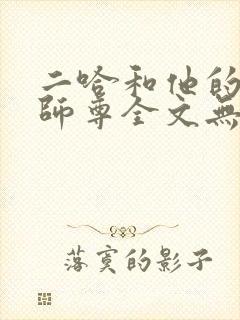 二哈和他的
師尊全文無
落寞的影子